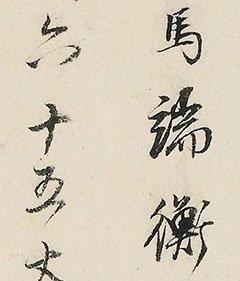 馬端衡
六十五丈